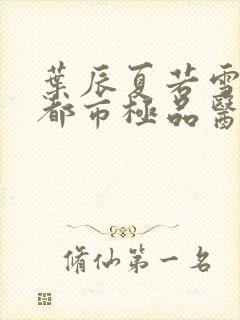 葉辰夏若雪
都市極品醫
脩仙第一名